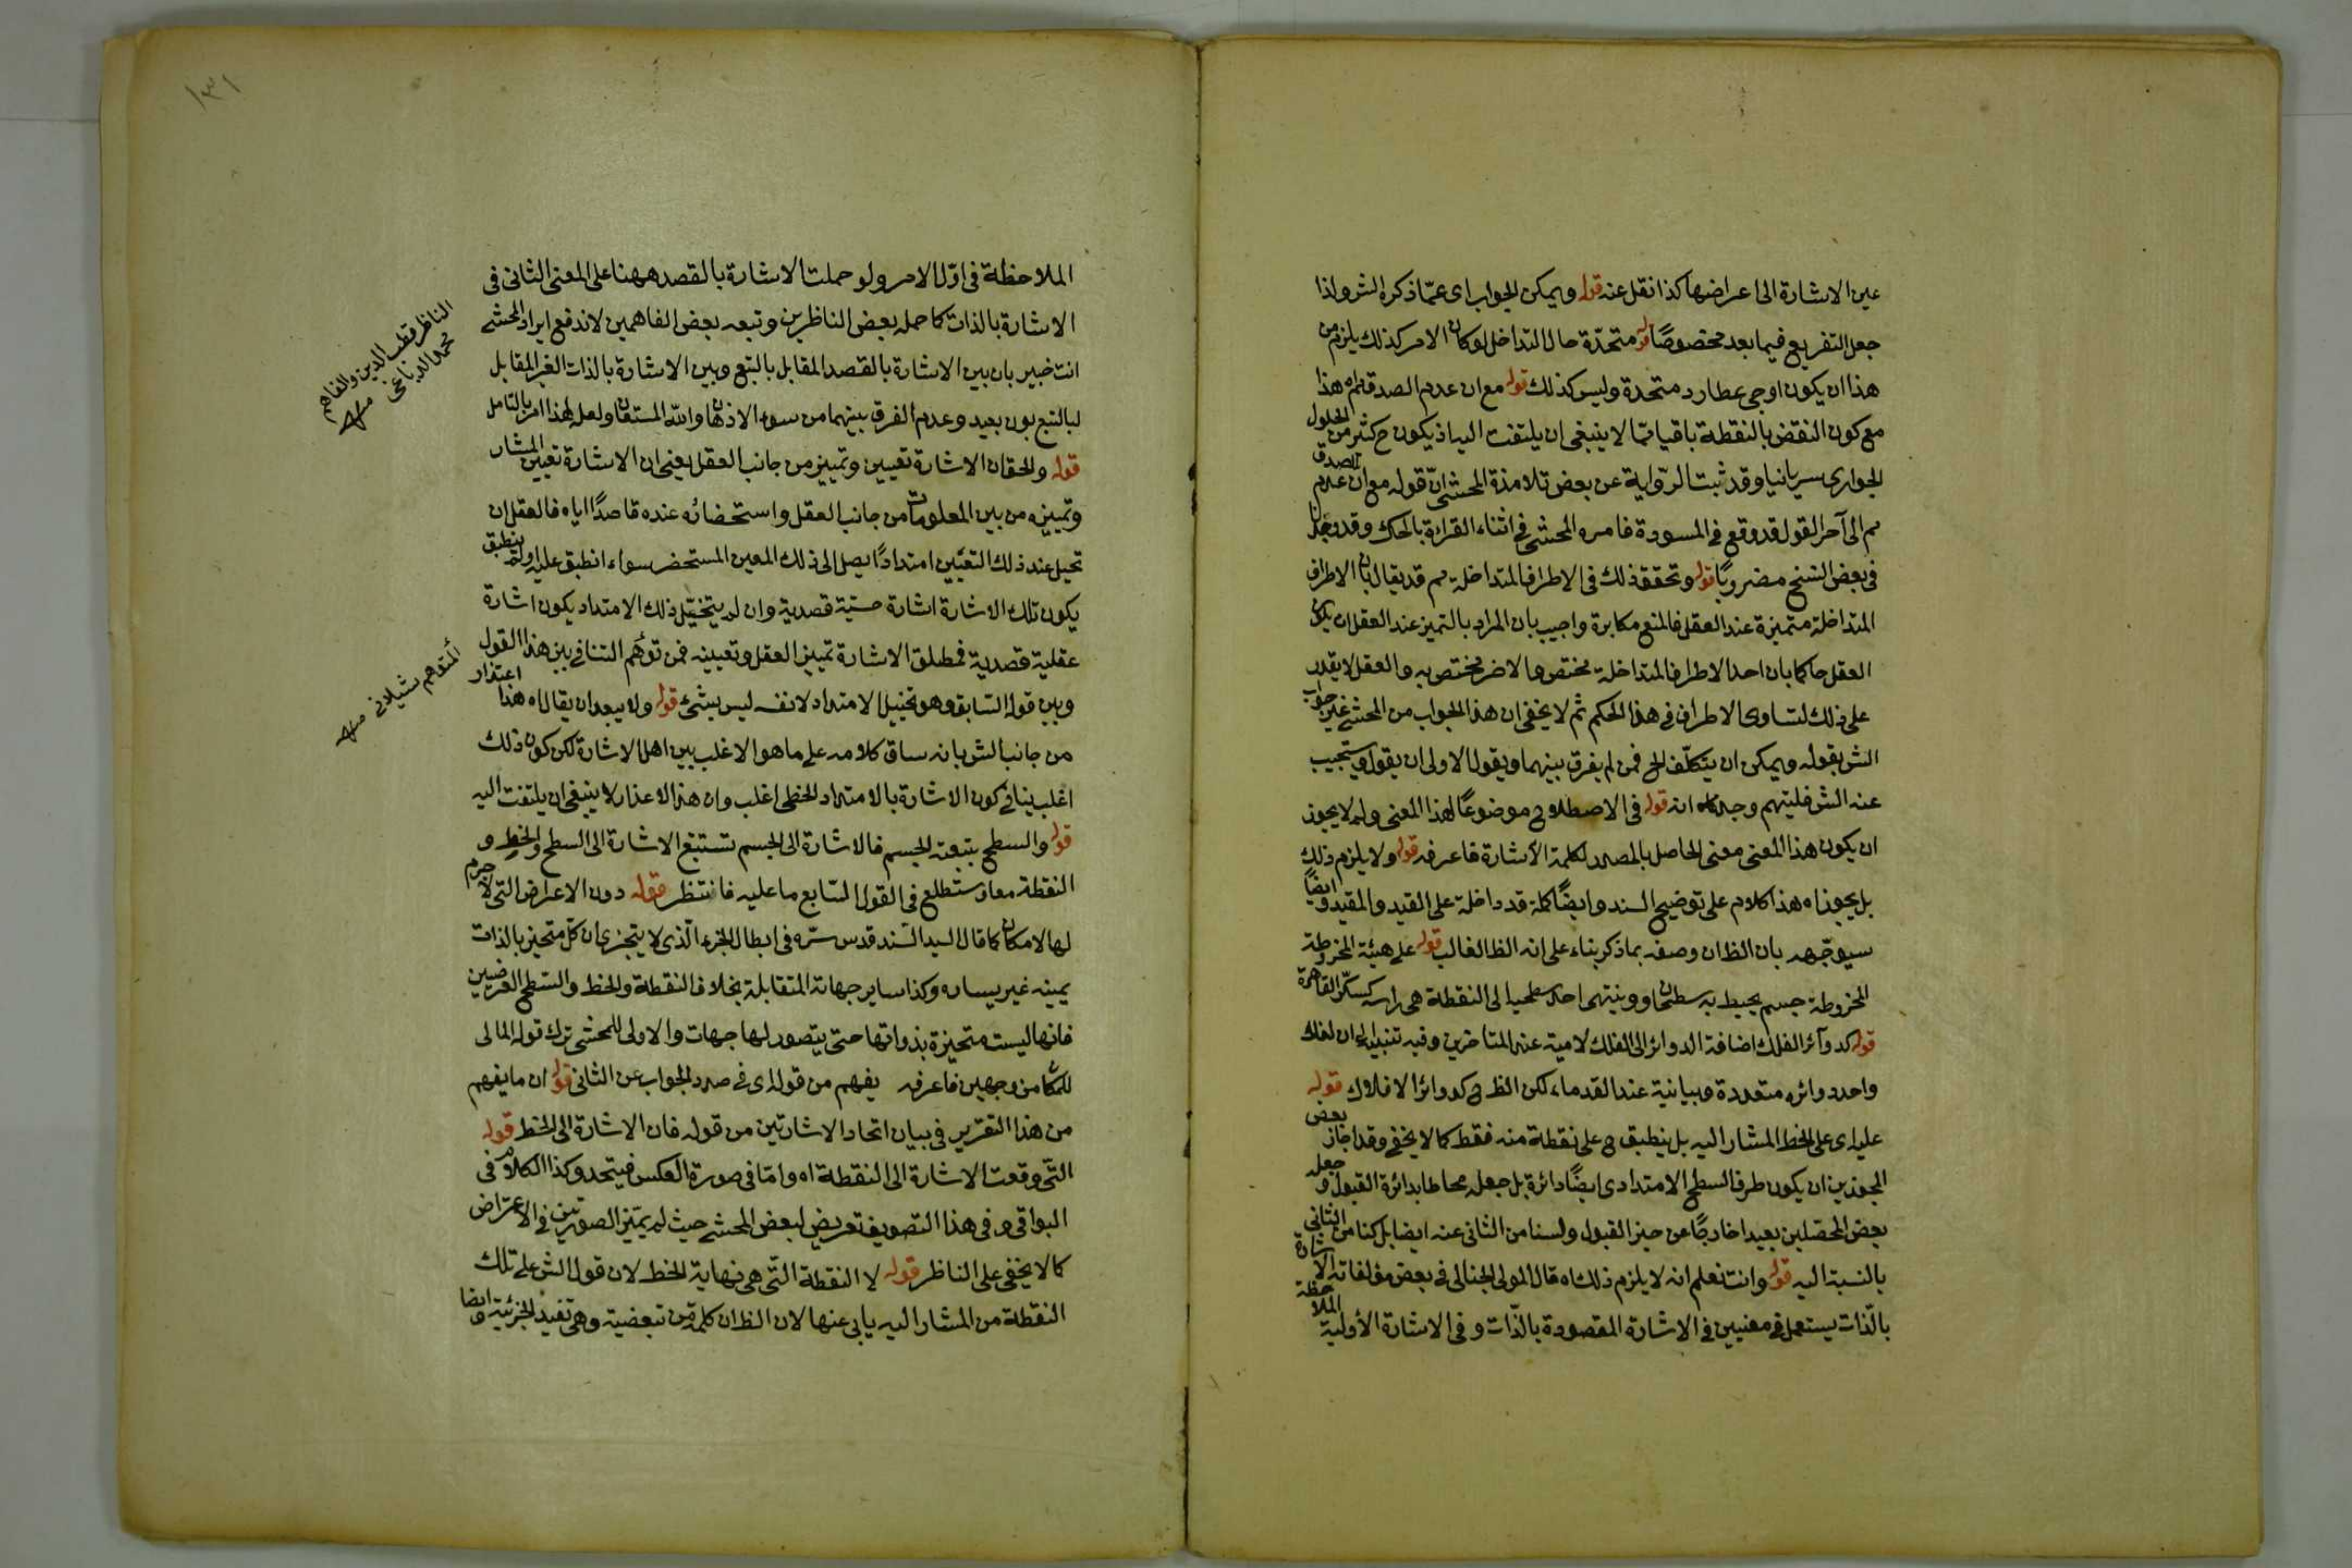 عين الاشارة الى اعراضها كذا نقل عنه قوله ويمكن الجواب اى عمّا ذكره الش ولذا
جعل التفريع فيما بعد مخصوصًا قوله متحدّة حال التداخل لو كان الامر كذلك يلزم من
هذا ان يكون اوجى عطارد متحدة وليس كذلك قوله مع ان عدم الصدق اه هذا
مع كون النقض بالنقطة باقيا ممّا لا ينبغى ان يلتفت اليه اذ يكون ح كثير من الحلول
الجوارى سريانيا وقد ثبت الرّواية عن بعض تلامذة المحشى انّ قوله مع ان عدم الصدق
مم الى آخر القول قد وقع فى المسودة فامره المحشى فى اثناء القراءة بالحك وقد وجدنا
فى بعض النسخ مضروبًا قوله وتحقق ذلك فى الاطراف المتداخلة مم قد يقال بان الاطراف
المتداخلة متميزة عند العقل فالمنع مكابرة واجيب بان المراد بالتميز عند العقل ان يكون
العقل حاكما بان احد الاطراف المتداخلة مختص بها والاخر مختص به والعقل لا يقدر
على ذلك لتساوى الاطراف فى هذا الحكم ثم لا يخفى ان هذا الجواب من المحشى غير جواب
الش بقوله ويمكن ان يتكلّف الخ فمن لم يفرق بينهما ويقول الاولى ان يقول ويستجيب
عنه الش فليتهم وجدانه اه انه قوله فى الاصطلاح موضوعًا لهذا المعنى ولم لا يجوز
ان يكون هذا المعنى معنى الحاصل بالمصدر لكلمة الاشارة فاعرفه قوله ولا يلزم ذلك
بل يجوز اه هذا كلام على توضيح السند وايضًا كلمة قد داخلة على القيد والمقيد وايضًا
سيوجّهه بان الظ ان وصفه بما ذكر بناء على انه الظ الغالب قوله على هيئة المخروطة
المخروطة جسم يحيط به سطحان وينتهى احد سطحيها الى النقطة هى راسه كسكّر القاهرة
قوله كدوآئر الفلك اضافة الدوائر الى الفلك لامية عند المتاخرين وفيه تنبيه الى ان لفلك
واحد دوائره متعددة وبيانية عند القدماء لكن الظ ح كدوائر الافلاك قوله
عليه اى على الخط المشار اليه بل ينطبق ح على نقطة منه فقط كما لا يخفى وقد اجاز بعض
المجوزين ان يكون طرف السطح الامتدادى ايضًا دائرة بل جعله محاطا بدائرة القبول وجعله
بعض المحصلين بعيدا خارجًا عن حيز القبول ولسنا من الثانى عنه ايضا بل كنا من الثانى
بالنسبة اليه قوله وانت تعلم انه لا يلزم ذلك اه قال المولى الجنالى فى بعض مؤلفاته الاشارة
بالّذات يستعمل فى معنيين فى الاشارة المقصودة بالذّات وفى الاشارة الأولية الملاحظة
١٣١
الملاحظة فى اوّل الامر ولو حملت الاشارة بالقصد ههنا على المعنى الثانى فى
الاشارة بالذات كما حمله بعض الناظرين وتبعه بعض الفاهمين لاندفع ايراد المحشى
انت خبير بان بين الاشارة بالقصد المقابل بالتبع وبين الاشارة بالذات الغير المقابل
لبالتبع بون بعيد وعدم الفرق بينهما من سوء الاذهان والله المستعان ولعل لهذا امر بالتامل
قوله والحق ان الاشارة تعيين وتمييز من جانب العقل يعنى ان الاشارة تعيين المشار
وتمييزه من بين المعلومات من جانب العقل واستحضائه عنده قاصدًا اياه فالعقل ان
تخيل عند ذلك التعيّين امتدادًا يصل الى ذلك المعين المستحضر سواء انطبق عليه او لم ينطبق
يكون تلك الاشارة اشارة حسّية قصدية وان لم يتخيّل ذلك الامتداد يكون اشارة
عقلية قصدية فمطلق الاشارة تمييز العقل وتعيينه فمن توهّم التنافى بين هذا القول
وبين قوله السّابق وهو تخييل الامتداد لا نفسه ليس بشئ قوله ولا يبعد ان يقال اه هذا اعتذار
من جانب الش بانه ساق كلامه على ما هو الاغلب بين اهل الاشارة لكن كون ذلك
اغلب ينافى كون الاشارة بالامتداد الخطى اغلب وان هذا الاعذار لا ينبغى ان يلتفت اليه
قوله والسطح بتبعته الجسم فالاشارة الى الجسم تستتبع الاشارة الى السطح والخط و
النقطة معا وستطلع فى القول السّابع ما عليه فانتظر قوله دون الاعراض التى لا جرم
لها الامكان كما قال السيد السّند قدس سرّه فى ابطال الجزء الّذى لا يتجزى ان كلّ متحيز بالذات
يمينه غير يساره وكذا ساير جهاته المتقابلة بخلاف النقطة والخط والسّطح العرضيين
فانها ليست متحيزة بذواتها حتى يتصور لها جهات والاولى للمحشى ترك قوله المالى
للمكان من وجهين فاعرفه يفهم من قوله اى فى صدد الجواب عن الثانى قوله ان ما يفهم
من هذا التقرير فى بيان اتحاد الاشارتين من قوله فان الاشارة الى الخط قوله
التى وقعت الاشارة الى النقطة اه وامّا فى صورة العكس فيتحد وكذا الكلام فى
البواقى وفى هذا التصوير تعريض لبعض المحشى حيث لم يتميّز الصورتين فى الاعتراض
كما لا يخفى على الناظر قوله لا النقطة التى هى نهاية الخط لان قول الش على تلك
النقطة من المشار اليه يابى عنها لان الظ ان كلمة من تبعضية وهى تفيد الجزئية وايضا
الناظر قطب الدين والفاهم
محمد الدباغى منه
المتوهم شيلانى منه